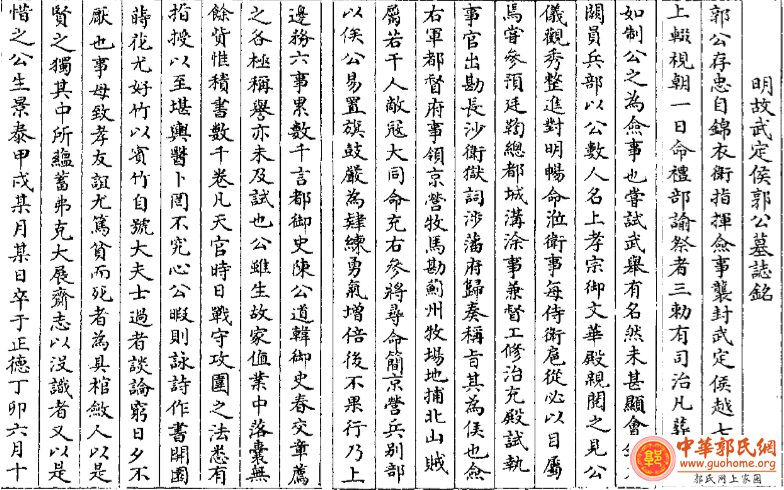 明故武定侯郭公墓誌銘
郭公存忠自錦衣衛指揮僉事襲封武定侯越七
上輟視朝一日命禮部諭祭者三勅有司治凡葬
如制公之為僉事也嘗試武舉有名然未甚顯會
闕員兵部以公數人名上孝宗御文華殿親閱之見公
儀觀秀整進對明暢命涖衛事每侍衛扈從必以目屬
焉嘗參預廷鞫總都城溝涂事兼督工修治充殿試執
事官出勘長沙衛獄詞涉藩府歸奏稱旨其為侯也僉
右軍都督府事領京營牧馬勘薊州牧場地捕北山賊
屬若干人敵寇大同命充右參將尋命簡京營兵別部
以侯公易置旗鼓嚴為肄練勇氣增倍後不果行乃上
邊務六事累數千言都御史陳公道韓御史春交章薦
之各極稱譽亦未及試也公雖生故家値業中落囊無
餘貲惟積書數千卷凡天官時日戰守攻圍之法悉有
指授以至堪輿醫卜罔不究心公暇則詠詩作書開園
蒔花尤好竹以賓竹自號大夫士過者談論窮日夕不
厭也事母致孝友誼尤篤貧而死者為具棺斂人以是
賢之獨其中所蘊蓄弗克大展齎志以沒識者又以是
惜之公生景泰甲戌某月某日卒于正德丁卯六月十
中華郭氏網
www.guohome.org
郭氏网上家园